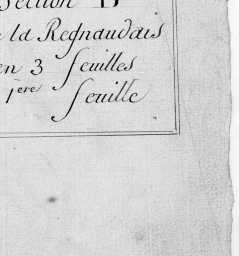 Section D
la Regnaudais
en 3 feuilles
1ere feuille